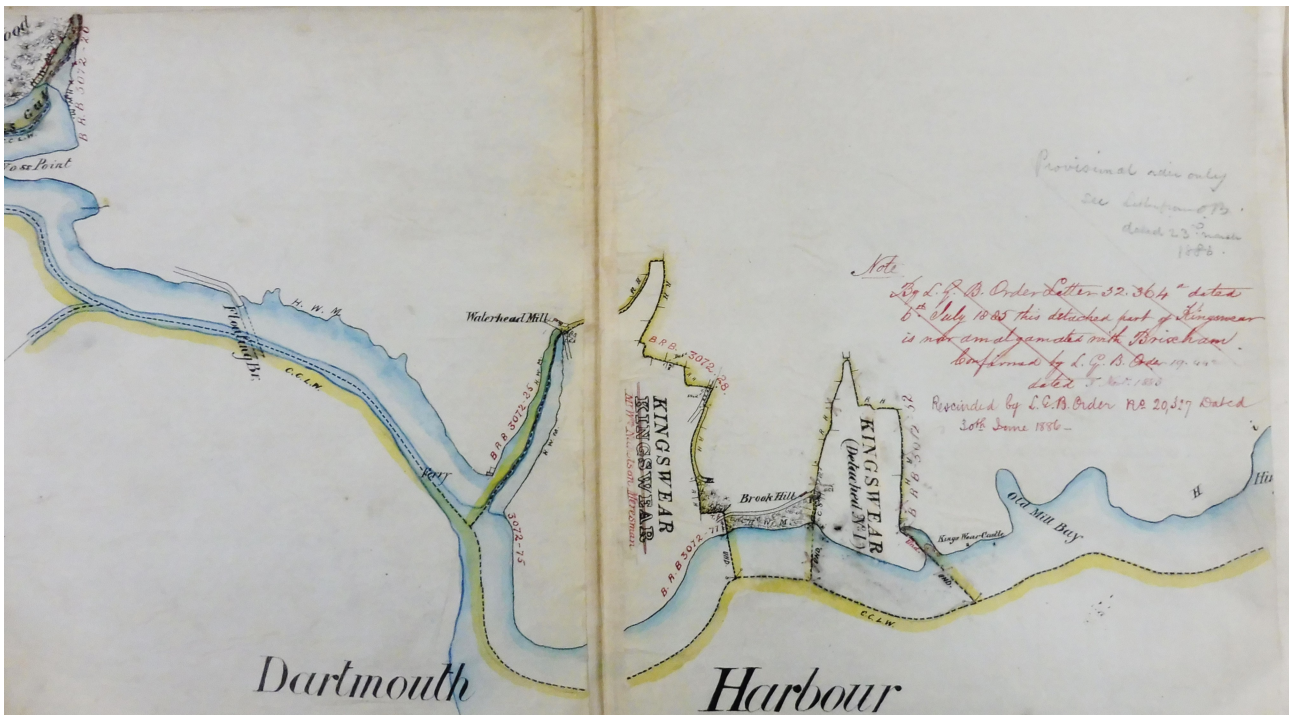 B.R.B 3072-20
C.C.L.W.
Point
H. W. M.
Floating Br.
C.C.L.W.
Waterhead Mill
B.R.B 3072-25
H.W.M
3072-75
R.H.
B.R.B. 3072-28.
KINGSWEAR
KINGSWEAR
Meresman
B.R.B 3072-71
Brook Hill
H.W.M
Und.
Und.
KINGSWEAR
(Detached No.1)
R.H.
Kings Wear Castle
Und.
Old Mill Bay
H
C.C.L.W.
Provisional order only
see
dated 23rd
1886.
Note
By L. G. B. Order Letter 32.364 dated
6th July 1885 this detached part of Kingswear
is now amalgamated with Brixham.
Confirmed by L. G. B. Order 19.442
dated
Rescinded by L.G.B. Order No. 20,327 Dated
30th June 1886
Dartmouth Harbour